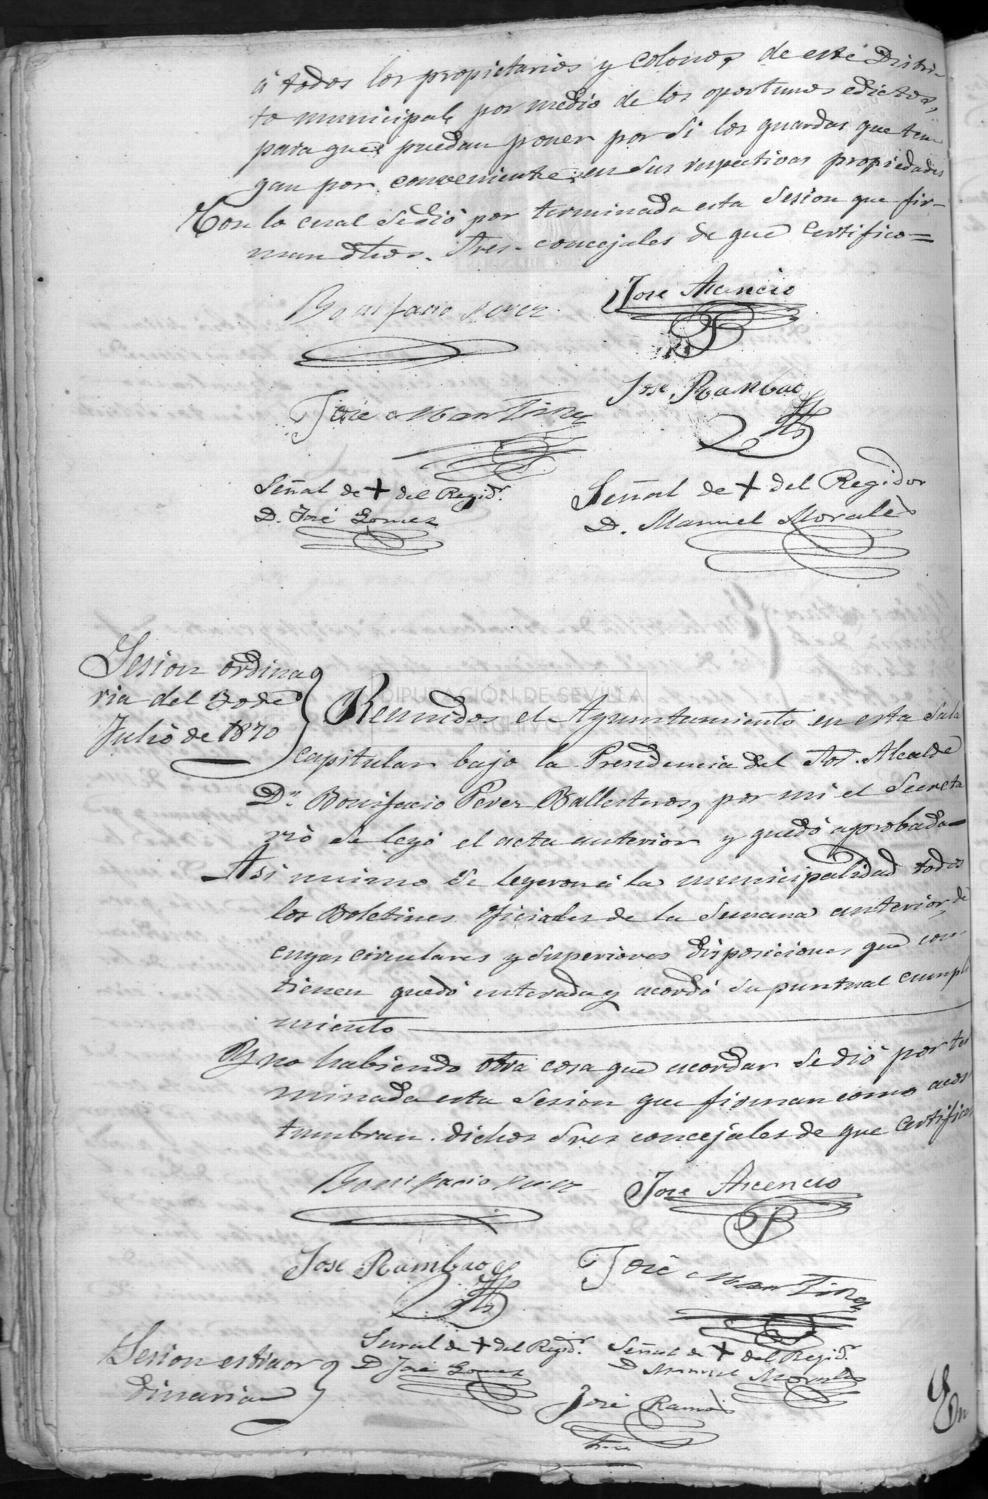 á todos los propietarios y colonos, de este Distri-
to municipal, por medio de los oportunos edictos,
para que puedan poner por si los guardas que ten
gan por conveniente, en sus respectivas propiedades
Con lo cual se dió por terminada esta Sesion que fir-
man dhos. Sres. concejales de que Certifico=
Bonifacio Perez
Jose Asencio
José Martinez
Jose Rambao
Señal de + del Regidr.
D. José Gomez
Señal de + del Regidor
D. Manuel Morales
Sesion ordina
ria del 30 de
Julio de 1870
DIPUTACIÓN DE SEVILLA
Reunidos el Ayuntamiento en esta Sala
capitular bajo la Presidencia del Sor. Alcalde
Dn. Bonifacio Perez Ballesteros, por mi el Secreta
rio se leyó el acta anterior y quedó aprobada=
Asi mismo se leyeron á la municipalidad todos
los Boletines oficiales de la semana anterior, de
cuyas circulares y superiores disposiciones que con-
tienen quedó enterada y acordó su puntual cumpli
miento
Y no habiendo otra cosa que acordar se dió por ter
minada esta Sesion que firman como acos
tumbran dichos Sres concejales de que Certifico
Bonifacio Perez
Jose Asencio
Jose Rambao
José Martinez
Señal de + del Regidr.
D José Gomez
Señal de + del Regidr.
D Manuel Morales
José Ramos
Sesion estraor
dinaria
En